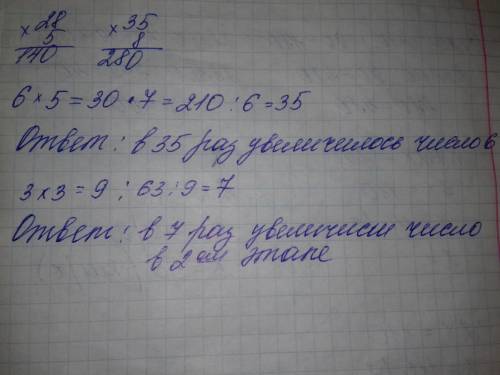 × 28 × 35
5 8
140 280
6 × 5 = 30 · 7 = 210 : 6 = 35
Ответ: в 35 раз увеличилось число 6
3 × 3 = 9 ; 63 : 9 = 7
Ответ: в 7 раз увеличили число
в 2 ом этапе